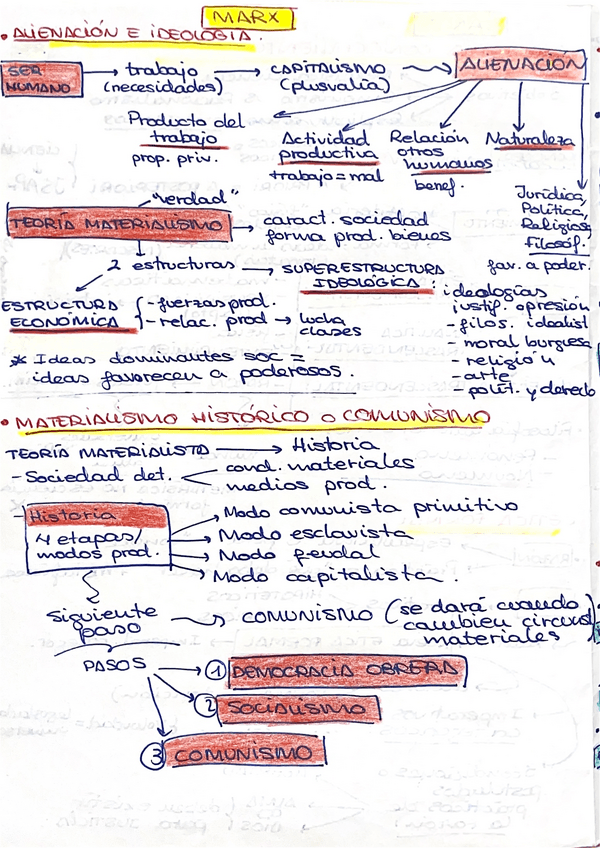 MARX
• ALIENACIÓN E IDEOLOGIA.
SER HUMANO → trabajo (necesidades) → CAPITALISMO (plusvalía) → ALIENACIÓN
Producto del
trabajo
prop. priv.
Actividad
productiva
trabajo = mal
Relación
otros
humanos
benef.
Naturaleza
Jurídica,
Política,
Religiosa,
filosóf.
fav. a poder.
"verdad"
TEORÍA MATERIALISMO → caract. sociedad
forma prod. bienes
2 estructuras → SUPERESTRUCTURA
IDEOLÓGICA:
ideologías
justif. opresión
- filos. idealist
- moral burguesa
- religión
- arte
- polít. y derecho
ESTRUCTURA
ECONÓMICA
- fuerzas prod.
- relac. prod → lucha
clases
* Ideas dominantes soc =
ideas favorecen a poderosos.
• MATERIALISMO HISTÓRICO O COMUNISMO
TEORÍA MATERIALISTA → Historia
- Sociedad det.
cond. materiales
medios prod.
- Historia
4 etapas/
modos prod.
Modo comunista primitivo
Modo esclavista
Modo feudal
Modo capitalista.
siguiente
paso
COMUNISMO (se dará cuando
cambien circust
materiales)
PASOS → ① DEMOCRACIA OBRERA
② SOCIALISMO
③ COMUNISMO